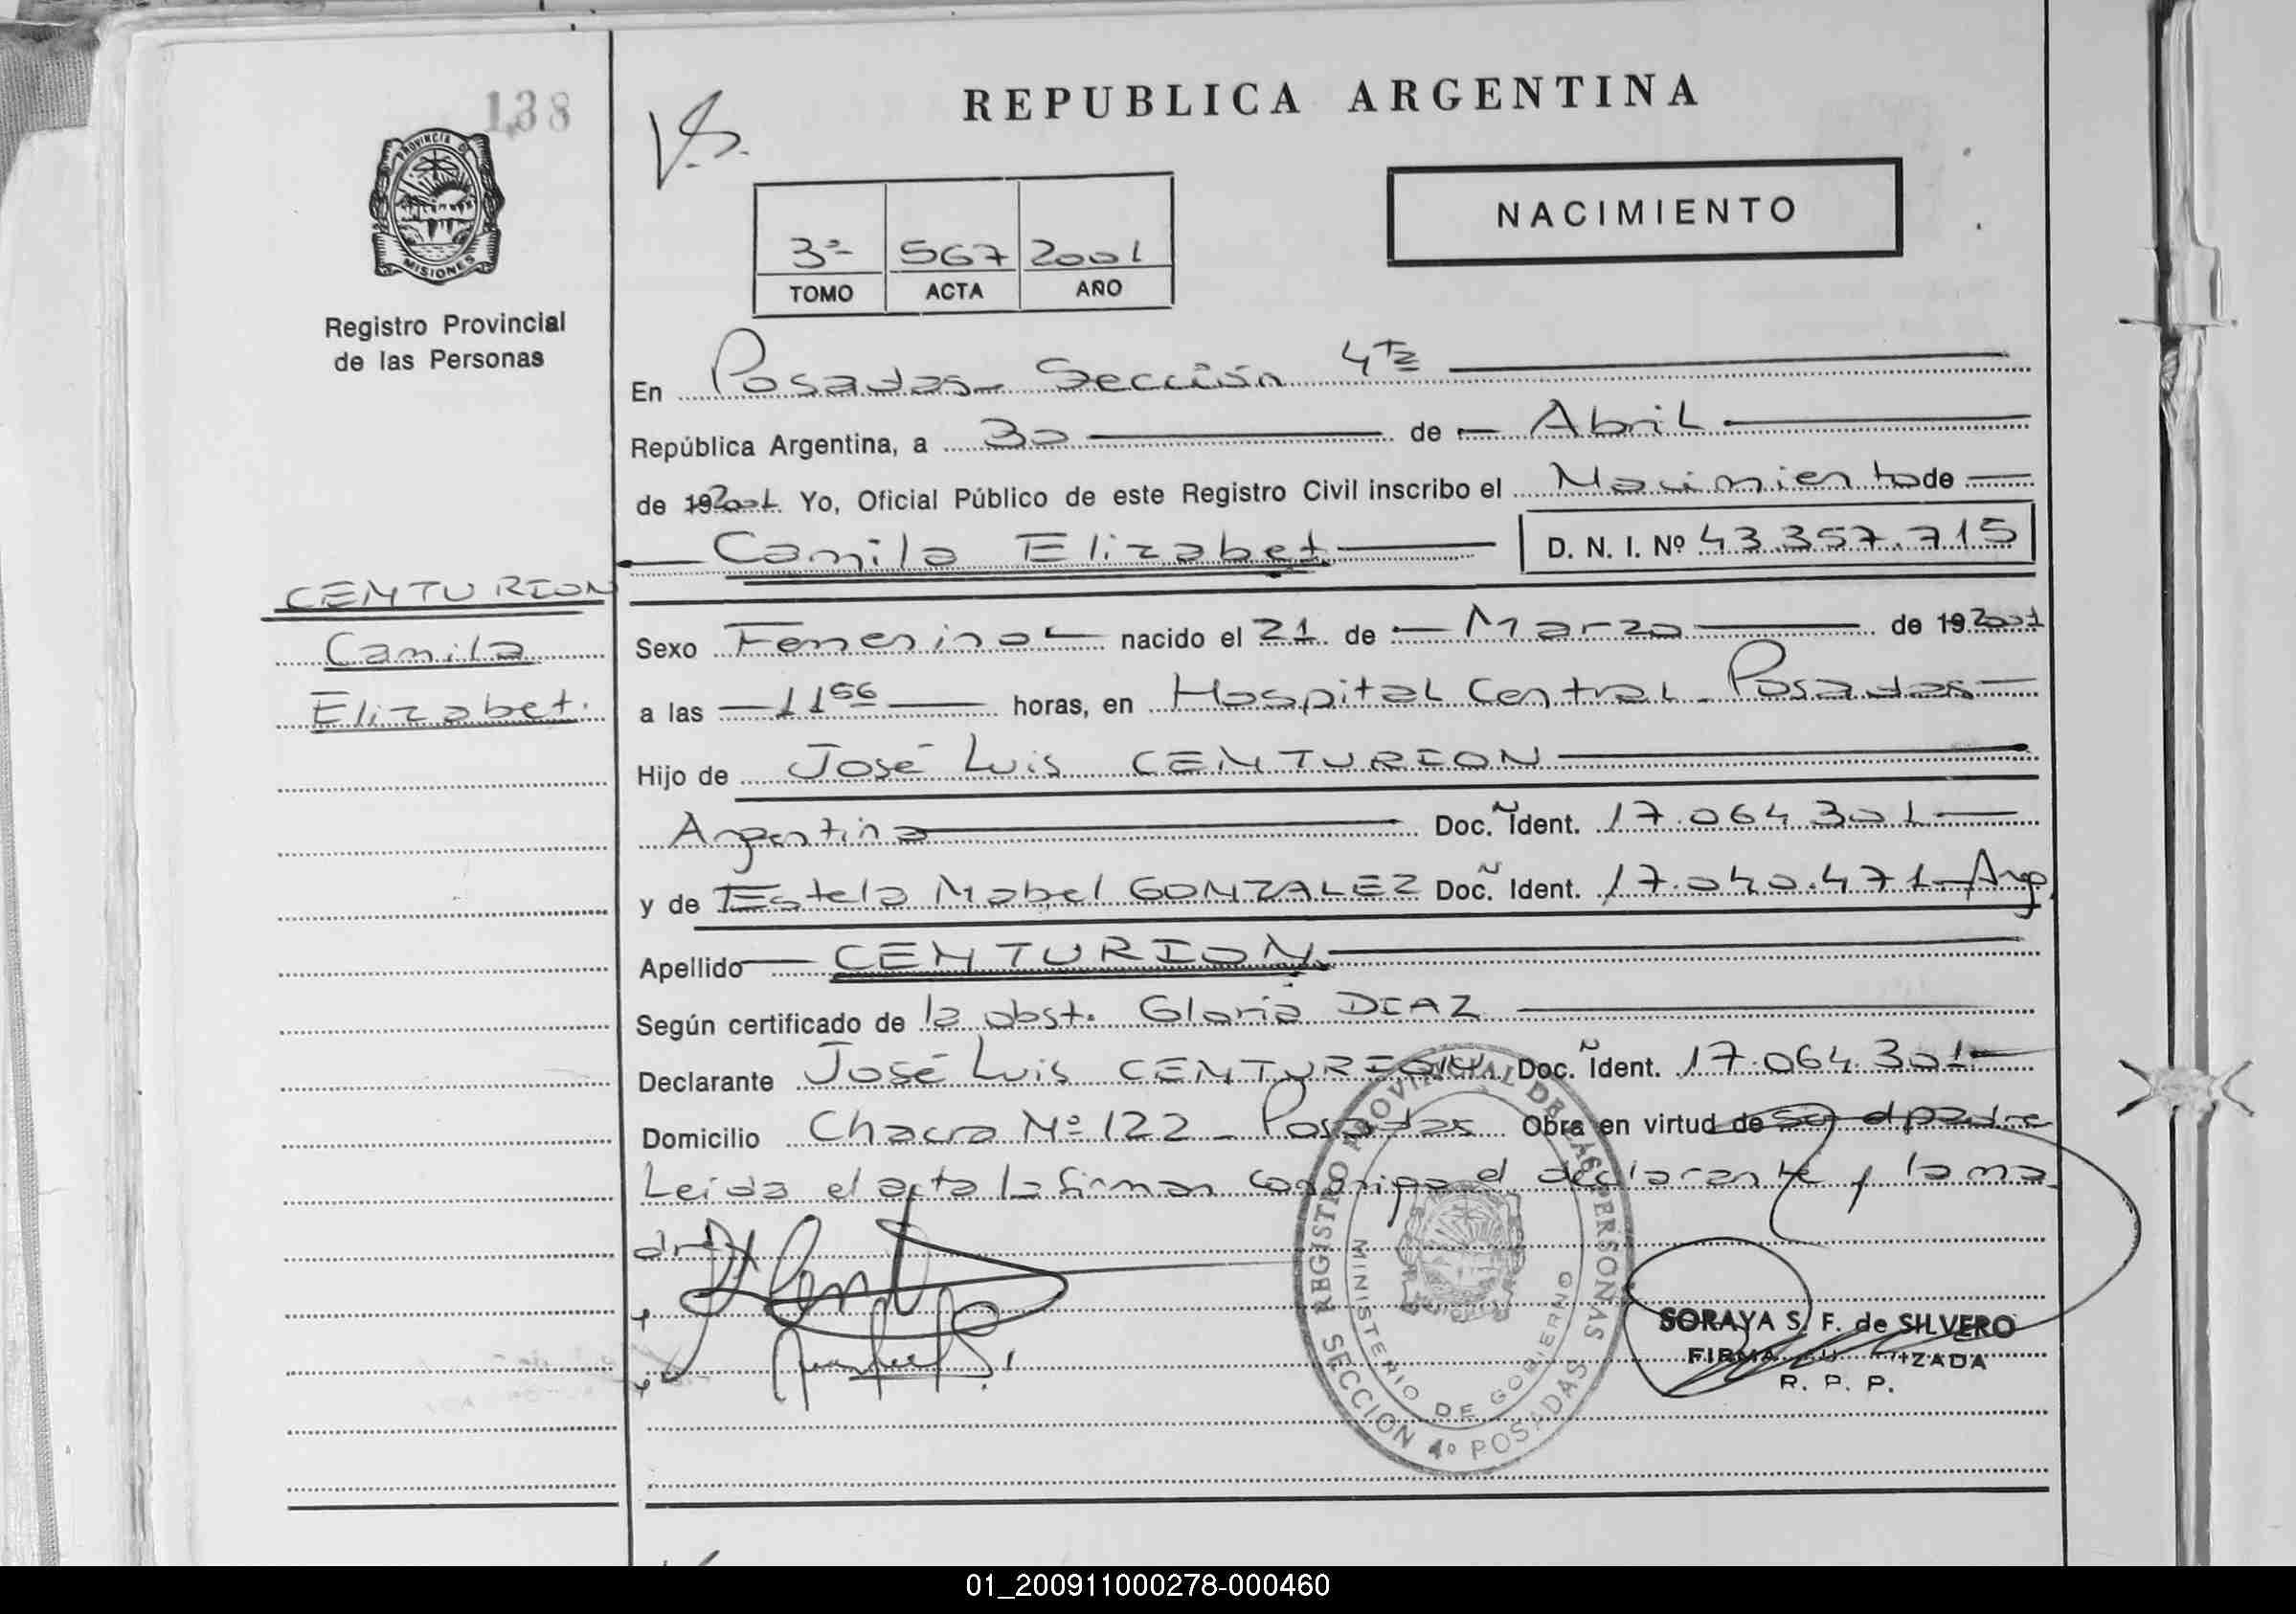 138
V.S.
REPUBLICA ARGENTINA
PROVINCIA DE
MISIONES
Registro Provincial
de las Personas
3º 567 2001
TOMO ACTA AÑO
NACIMIENTO
En Posadas - Sección 4ta
República Argentina, a 30 de Abril
de 192001 Yo, Oficial Público de este Registro Civil inscribo el Nacimiento de
Camila Elizabet D. N. I. Nº 43.357.715
CENTURION
Camila
Elizabet.
Sexo Femenino nacido el 21 de Marzo de 192001
a las 11 56 horas, en Hospital Central - Posadas
Hijo de José Luis CENTURION
Argentina Doc. Ident. 17.064.301
y de Estela Mabel GONZALEZ Doc. Ident. 17.040.471 - Arg.
Apellido CENTURION
Según certificado de la obst. Gloria DIAZ
Declarante José Luis CENTURION Doc. Ident. 17.064.301
Domicilio Chacra Nº 122 - Posadas Obra en virtud de ser el padre
Leida el acta la firman conmigo el declarante y la ma
dre
REGISTRO PROVINCIAL DE LAS PERSONAS
MINISTERIO DE GOBIERNO
SECCION 4º POSADAS
SORAYA S. F. de SILVERO
FIRMA AUTORIZADA
R. P. P.
01_200911000278-000460